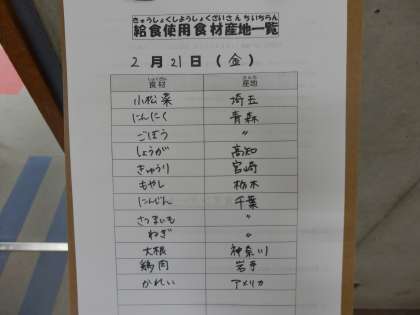 きゅうしょくしようしょくざいさんちいちらん
給食使用食材産地一覧
2月21日(金)
しょくざい さんち
食材 産地
小松菜 埼玉
にんにく 青森
ごぼう 〃
しょうが 高知
きゅうり 宮崎
もやし 栃木
にんじん 千葉
さつまいも 〃
ねぎ 〃
大根 神奈川
鶏肉 岩手
かれい アメリカ